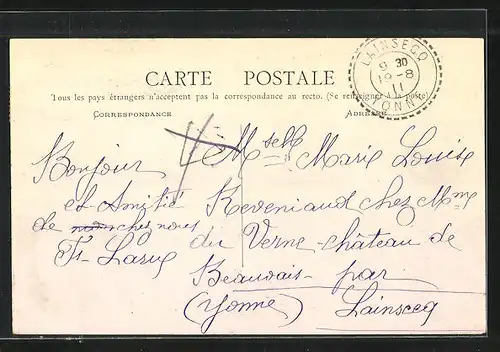 CARTE POSTALE
Tous les pays étrangers n'acceptent pas la correspondance au recto. (Se renseigner à la poste)
CORRESPONDANCE
ADRESSE
LAINSECQ
9 30
19-8
11
YONNE
Bonjour
et Amitié
de chez nous
Melle Marie Louise
chez Mme
du Verne château de
Beauvais par
(Yonne) Lainsecq